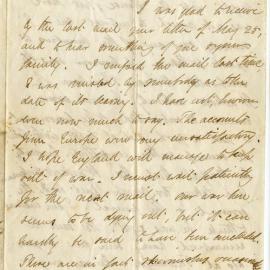 I was glad to receive
by the last mail your letter of May 25,
and to hear something of your
family. I missed the mail last time
I was misled by somebody as to the
date of its leaving. I have not, however,
even now much to say. The accounts
from Europe were very unsatisfactory.
I hope England will manage to keep
out of war. I must wait patiently
for the next mail. Our war here
seems to be dying out, but it can
hardly be said to have been concluded.
There are in fact